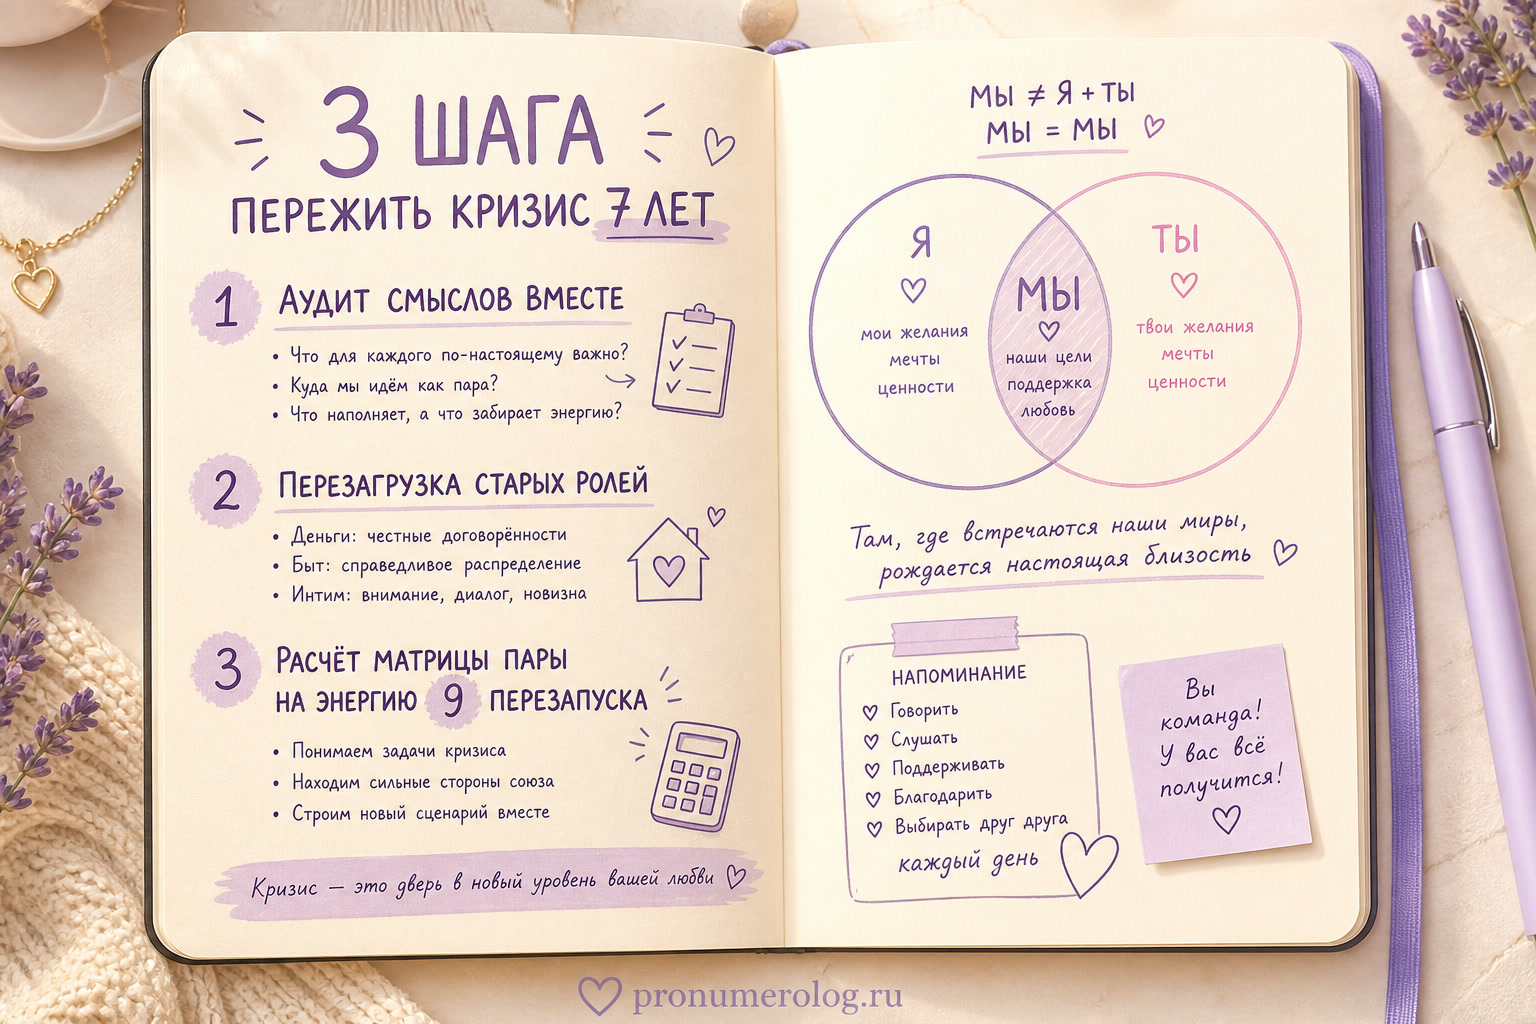 3 ШАГА
ПЕРЕЖИТЬ КРИЗИС 7 ЛЕТ
1 АУДИТ СМЫСЛОВ ВМЕСТЕ
• Что для каждого по-настоящему важно?
• Куда мы идём как пара?
• Что наполняет, а что забирает энергию?
2 ПЕРЕЗАГРУЗКА СТАРЫХ РОЛЕЙ
• Деньги: честные договорённости
• Быт: справедливое распределение
• Интим: внимание, диалог, новизна
3 РАСЧЁТ МАТРИЦЫ ПАРЫ
НА ЭНЕРГИЮ 9 ПЕРЕЗАПУСКА
• Понимаем задачи кризиса
• Находим сильные стороны союза
• Строим новый сценарий вместе
Кризис — это дверь в новый уровень вашей любви
МЫ ≠ Я + ТЫ
МЫ = МЫ
Я
мои желания
мечты
ценности
МЫ
наши цели
поддержка
любовь
ТЫ
твои желания
мечты
ценности
Там, где встречаются наши миры,
рождается настоящая близость
НАПОМИНАНИЕ
Говорить
Слушать
Поддерживать
Благодарить
Выбирать друг друга
каждый день
Вы
команда!
У вас всё
получится!
pronumerolog.ru